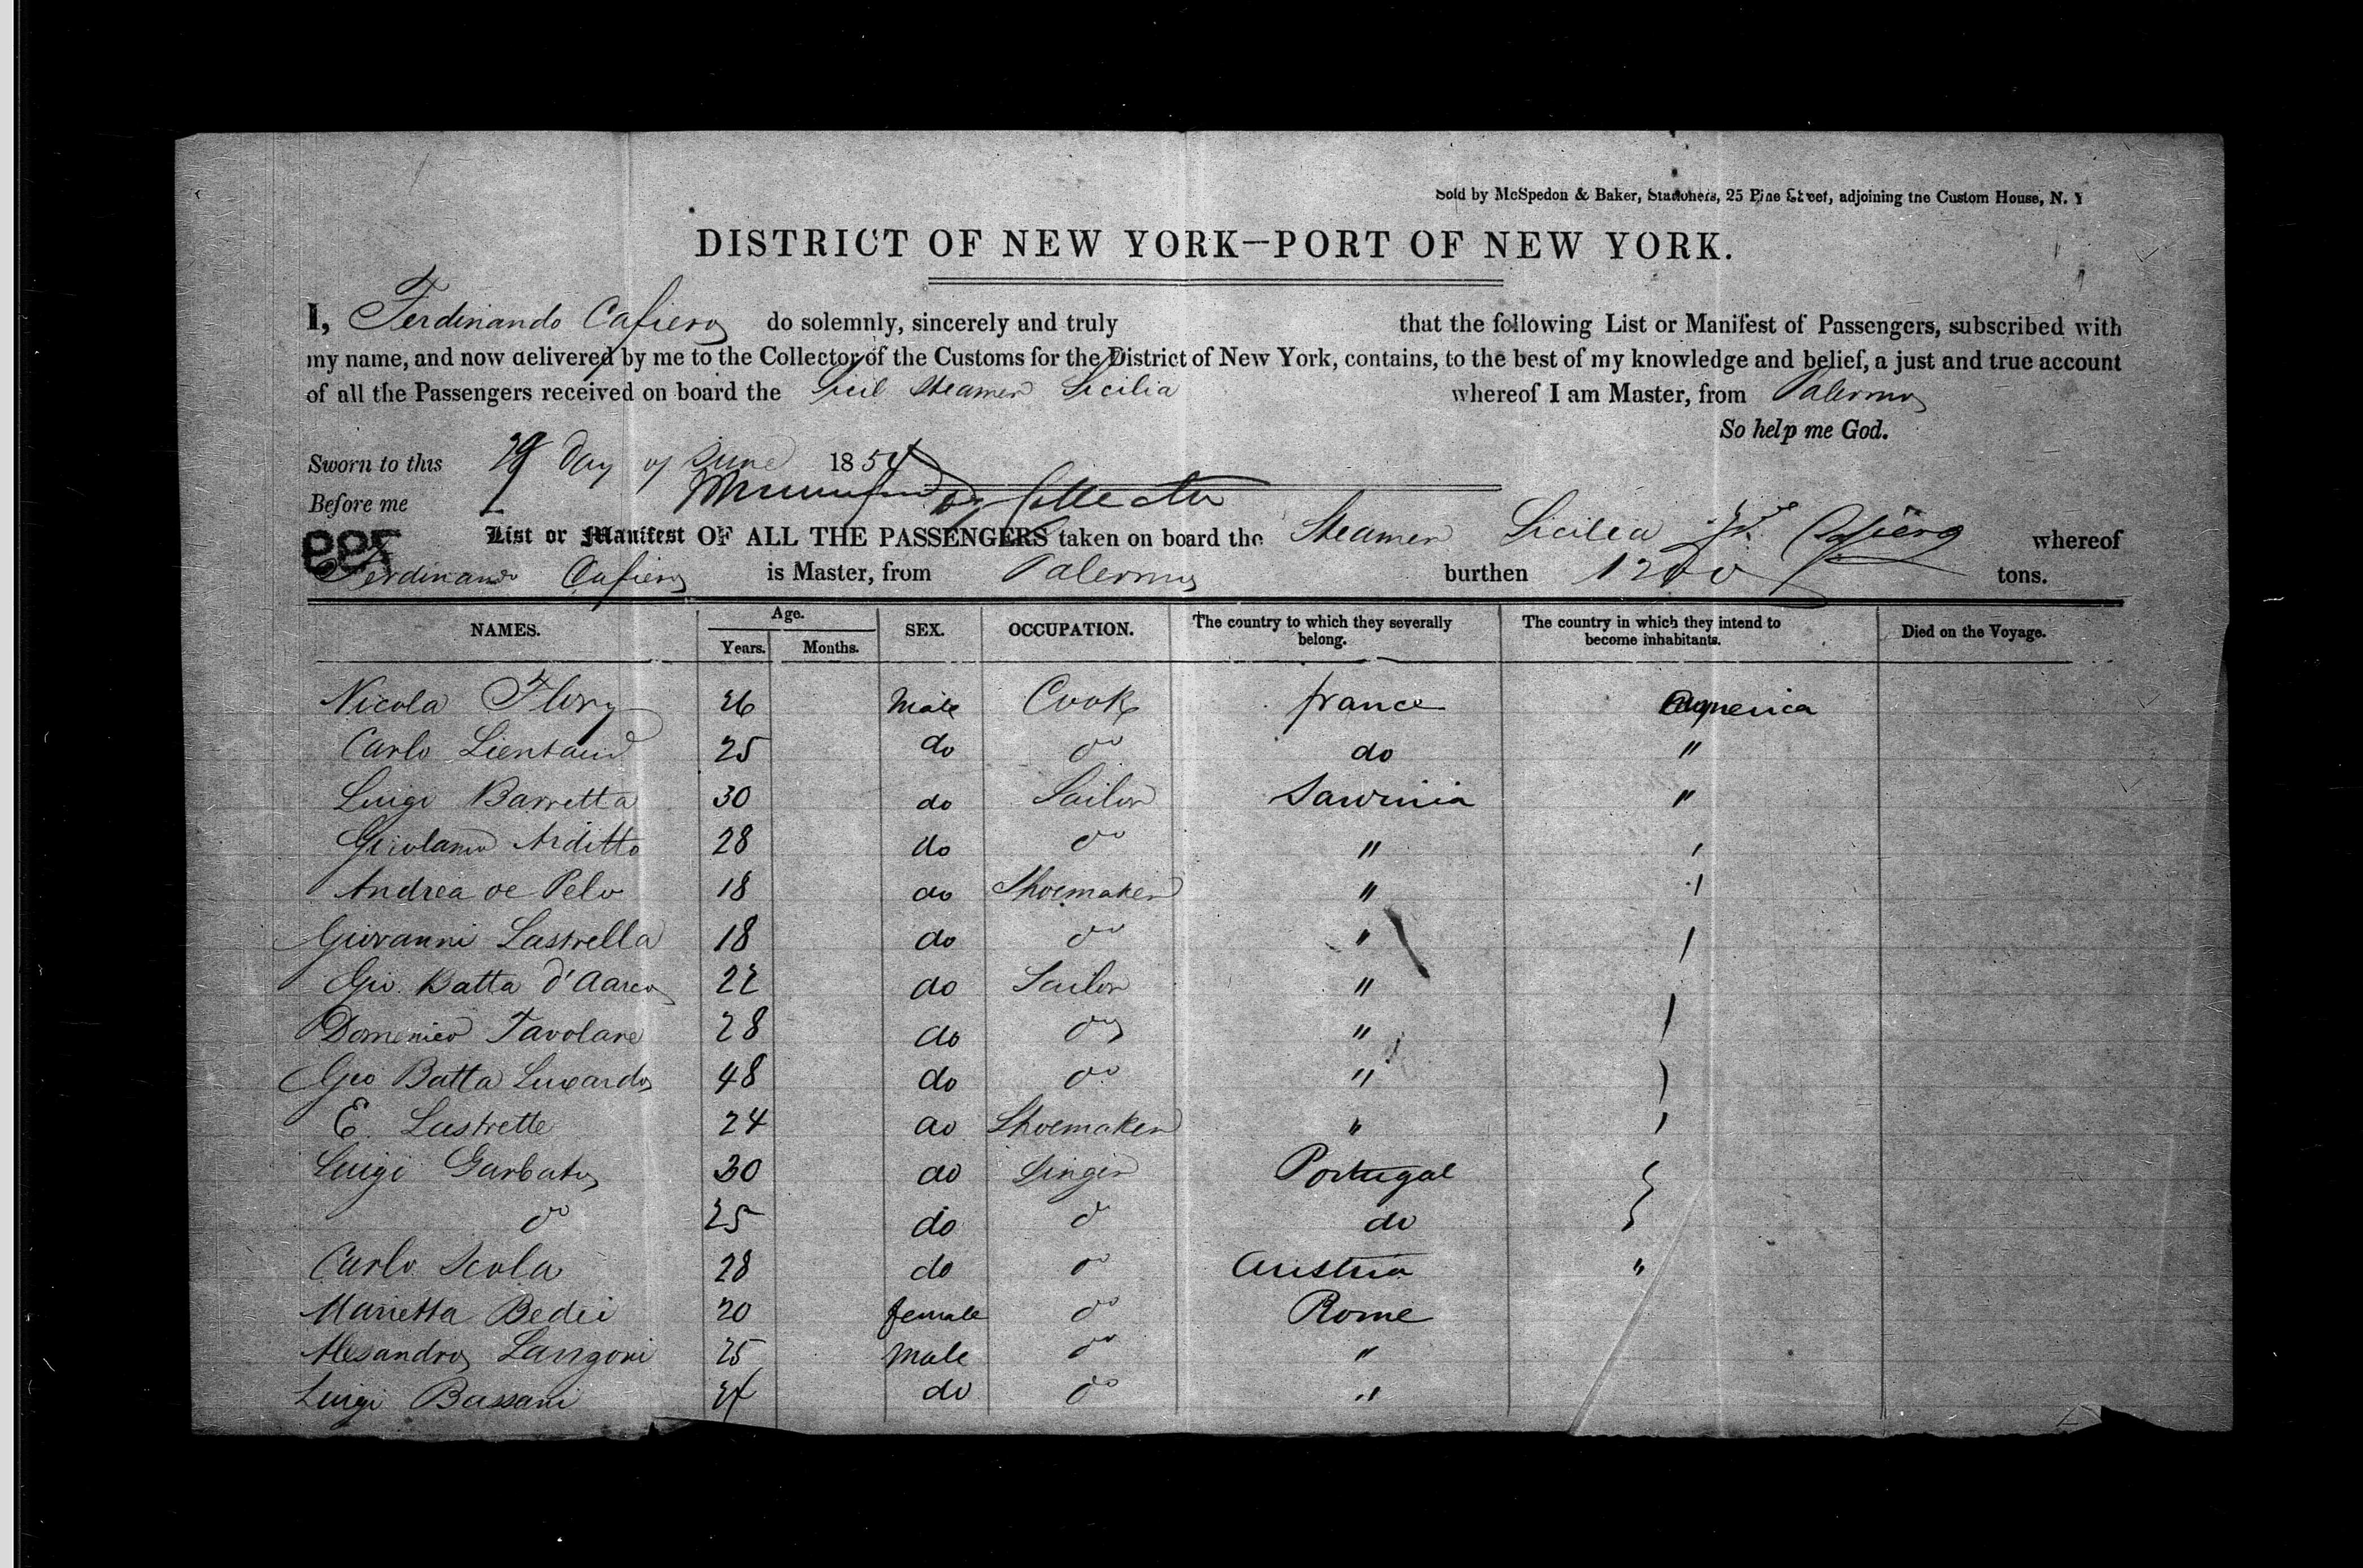 Sold by McSpedon & Baker, Stationers, 25 Pine Street, adjoining the Custom House, N. Y
DISTRICT OF NEW YORK—PORT OF NEW YORK.
I, Ferdinando Cafiero do solemnly, sincerely and truly that the following List or Manifest of Passengers, subscribed with
my name, and now delivered by me to the Collector of the Customs for the District of New York, contains, to the best of my knowledge and belief, a just and true account
of all the Passengers received on board the Sicil Steamer Sicilia whereof I am Master, from Palermo
So help me God.
Sworn to this 29 day of June 1854
Before me Collector
885
List or Manifest OF ALL THE PASSENGERS taken on board the Steamer Sicilia Cafiero whereof
Ferdinando Cafiero is Master, from Palermo burthen 1200 tons.
NAMES. Age. Years. Months. SEX. OCCUPATION. The country to which they severally belong. The country in which they intend to become inhabitants. Died on the Voyage.
Nicola Flory 26 Male Cook france America
Carlo Lientaud 25 do do do "
Luigi Barretta 30 do Sailor Sardinia "
Girolamo Arditto 28 do do " '
Andrea de Pelo 18 do Shoemaker " '
Giovanni Lastrella 18 do do "
Gio. Batta d'Aarco 22 do Sailor "
Domenico Tavolare 28 do do "
Gio Batta Luxardo 48 do do "
E. Lastrette 24 do Shoemaker "
Luigi Garbato 30 do Singer Portugal
do 25 do do do
Carlo Scola 28 do do Austria "
Marietta Bedei 20 female do Rome
Alesandro Langoni 25 Male do "
Luigi Bassani do do "